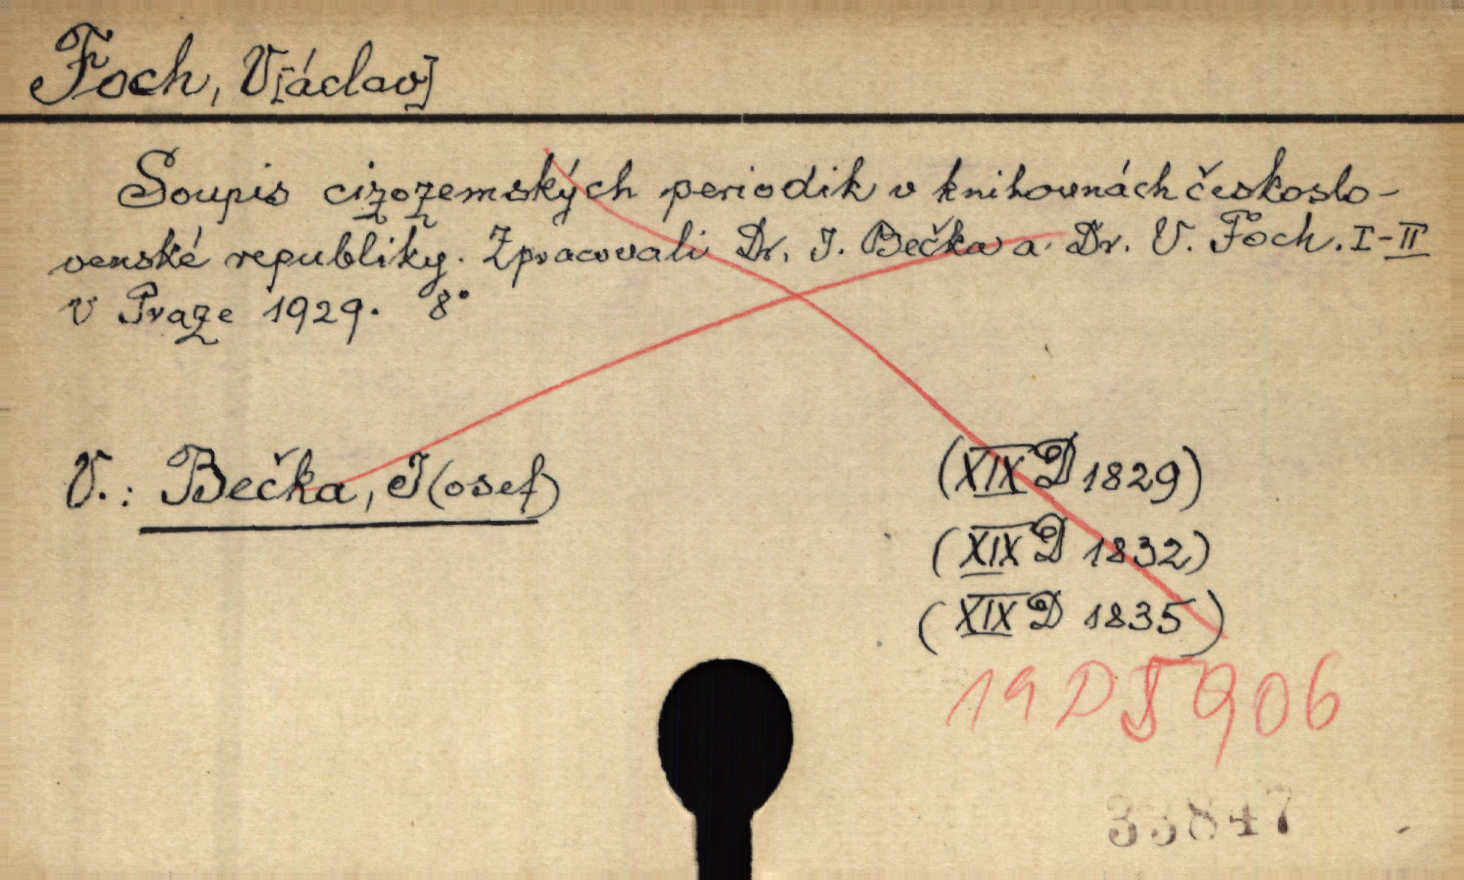 Foch, V[áclav]
Soupis cizozemských periodik v knihovnách českoslo-
venské republiky. Zpracovali Dr. J. Bečka a Dr. V. Foch. I-II
V Praze 1929. 8°
V.: Bečka, J(osef)
(XIX D 1829)
(XIX D 1832)
(XIX D 1835)
19 D 5906
33847